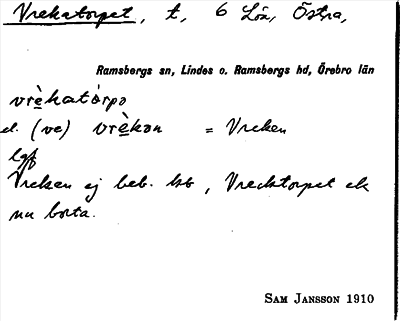 Vrekatorpet, t, 6 Löa, Östra,
Ramsbergs sn, Lindes o. Ramsbergs hd, Örebro län
vrèkatórpo
el. (ve) vrèkan = Vreken
Vreken ej beb. , Vrecktorpet ek
nu borta.
SAM JANSSON 1910